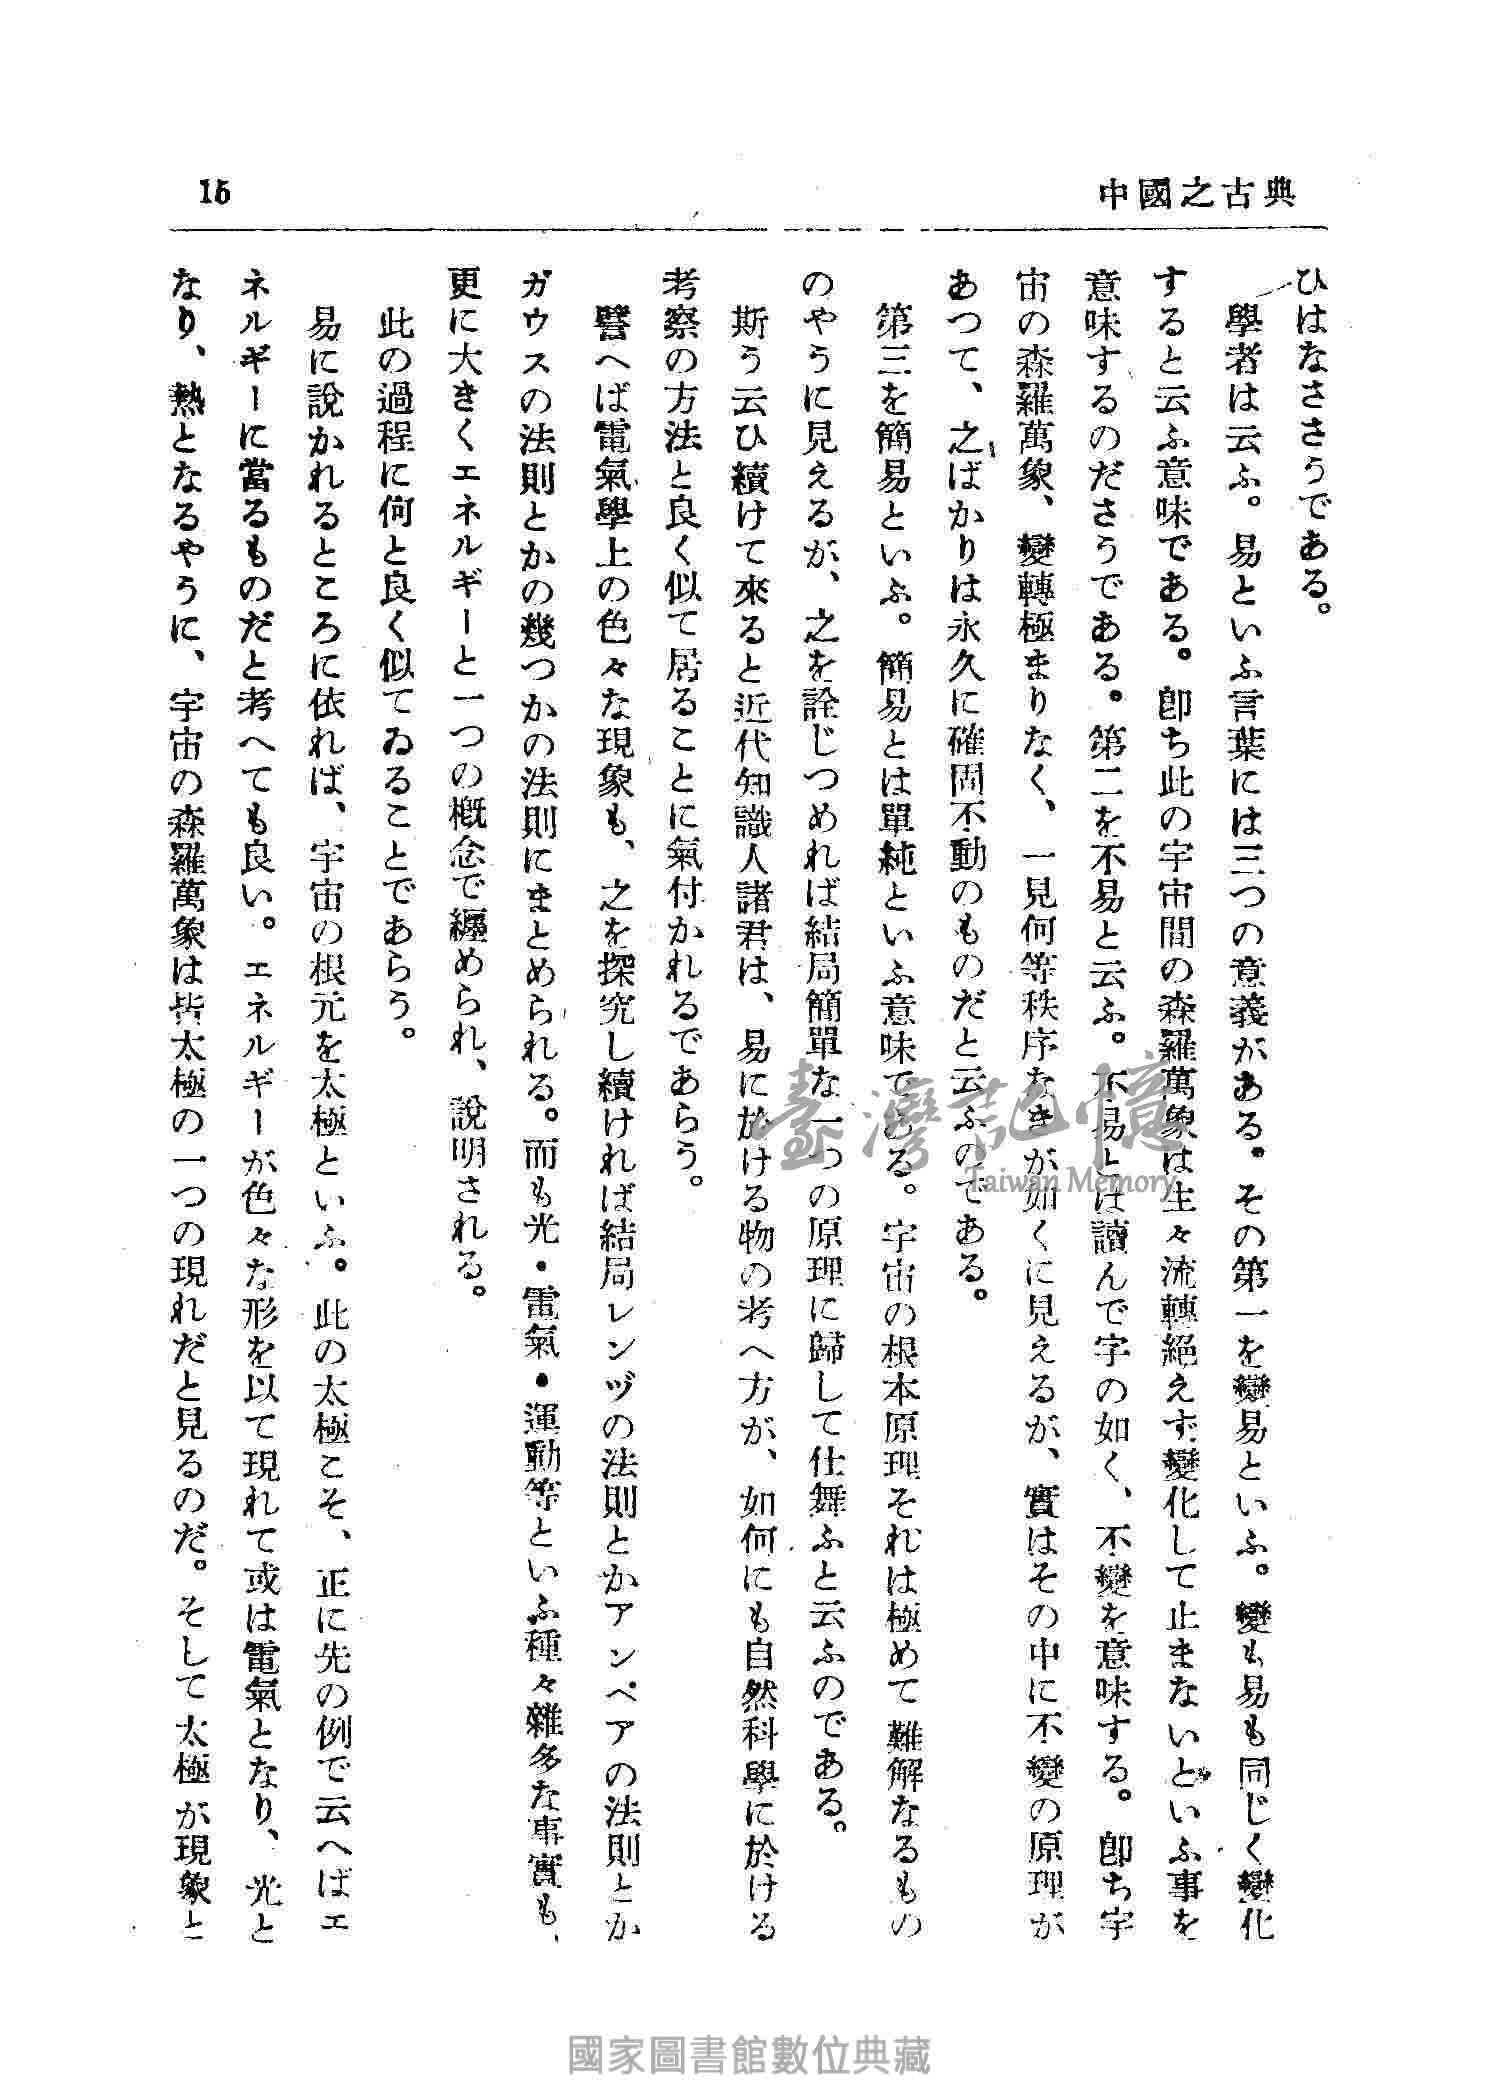 中國之古典
15
ひはなささうである。
學者は云ふ。易といふ言葉には三つの意義がある。その第一を變易といふ。變も易も同じく變化
すると云ふ意味である。卽ち此の宇宙間の森羅萬象は生々流轉絕えず變化して止まないといふ事を
意味するのださうである。第二を不易と云ふ。不易とは讀んで字の如く、不變を意味する。卽ち宇
宙の森羅萬象、變轉極まりなく、一見何等秩序なきが如くに見えるが、實はその中に不變の原理が
あつて、之ばかりは永久に確固不動のものだと云ふのである。
第三を簡易といふ。簡易とは單純といふ意味である。宇宙の根本原理それは極めて難解なるもの
のやうに見えるが、之を詮じつめれば結局簡單な一つの原理に歸して仕舞ふと云ふのである。
斯う云ひ續けて來ると近代知識人諸君は、易に於ける物の考へ方が、如何にも自然科學に於ける
考察の方法と良く似て居ることに氣付かれるであらう。
譬へば電氣學上の色々な現象も、之を探究し續ければ結局レンヅの法則とかアンペアの法則とか
ガウスの法則とかの幾つかの法則にまとめられる。而も光・電氣・運動等といふ種々雜多な事實も、
更に大きくエネルギーと一つの槪念で纏められ、說明される。
此の過程に何と良く似てゐることであらう。
易に說かれるところに依れば、宇宙の根元を太極といふ。此の太極こそ、正に先の例で云へばエ
ネルギーに當るものだと考へても良い。エネルギーが色々な形を以て現れて或は電氣となり、光と
なり、熱となるやうに、宇宙の森羅萬象は皆太極の一つの現れだと見るのだ。そして太極が現象と
臺灣記憶
Taiwan Memory
國家圖書館數位典藏